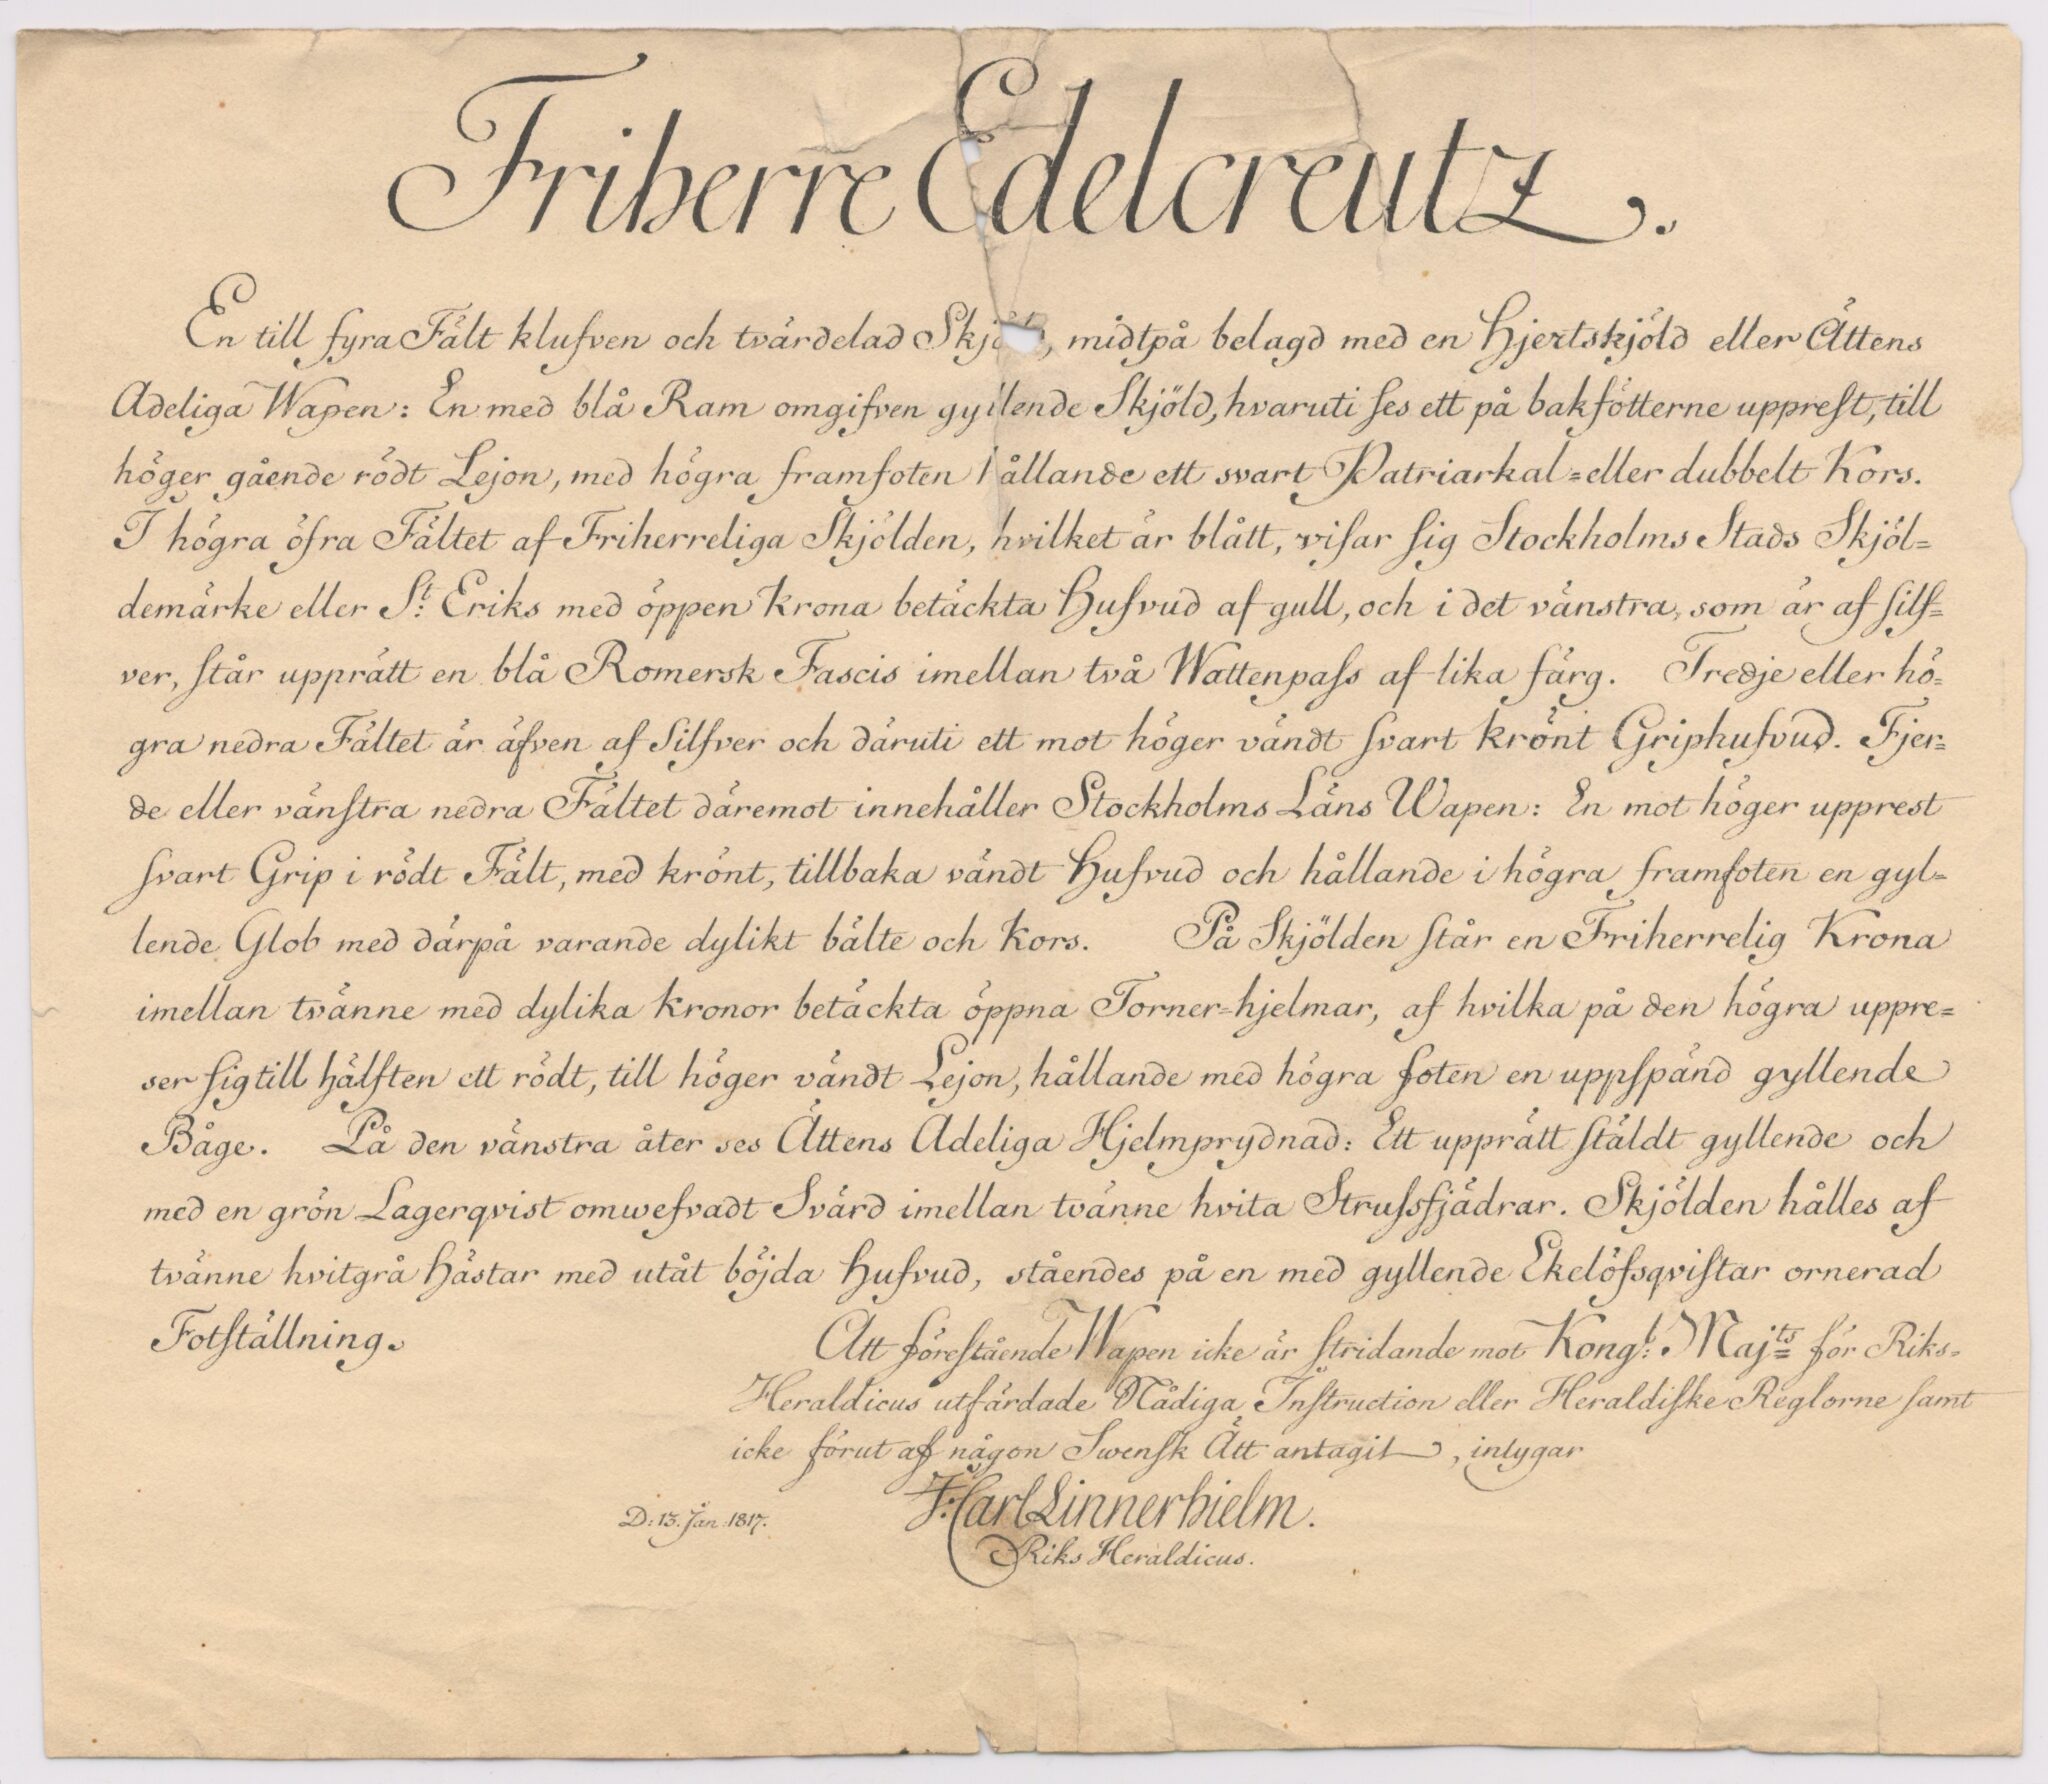 Friherre Edelcreutz.
En till fyra Fält klufven och tvärdelad Skjöld, midtpå belagd med en Hjertskjöld eller Ättens
Adeliga Wapen: En med blå Ram omgifven gyllende Skjöld, hvaruti ses ett på bakfötterne upprest, till
höger gående rödt Lejon, med högra framfoten hållande ett svart Patriarkal=eller dubbelt Kors.
I högra öfra Fältet af Friherreliga Skjölden, hvilket är blått, visar sig Stockholms Stads Skjöl=
demärke eller St: Eriks med öppen Krona betäckta Hufvud af gull, och i det vänstra, som är af silf=
ver, står upprätt en blå Romersk Fascis imellan två Wattenpass af lika färg. Tredje eller hö=
gra nedra Fältet är äfven af Silfver och däruti ett mot höger vändt svart krönt Griphufvud. Fjer=
de eller vänstra nedra Fältet däremot innehåller Stockholms Läns Wapen: En mot höger upprest
svart Grip i rödt Fält, med krönt, tillbaka vändt Hufvud och hållande i högra framfoten en gyl=
lende Glob med därpå varande dylikt bälte och Kors. På Skjölden står en Friherrelig Krona
imellan tvänne med dylika Kronor betäckta öppna Torner=hjelmar, af hvilka på den högra uppre=
ser sig till hälften ett rödt, till höger vändt Lejon, hållande med högra foten en uppspänd gyllende
Båge. På den vänstra åter ses Ättens Adeliga Hjelmprydnad: Ett upprätt stäldt gyllende och
med en grön Lagerqvist omwefvadt Svärd imellan tvänne hvita Strussfjädrar. Skjölden hålles af
tvänne hvitgrå Hästar med utåt böjda Hufvud, ståendes på en med gyllende Ekelöfsqvistar ornerad
Fotställning.
Att förestående Wapen icke är stridande mot Kongl: Majts för Riks=
Heraldicus utfärdade Nådiga Instruction eller Heraldiske Reglorne samt
icke förut af någon Swensk Ätt antagit, intygar
J: Carl Linnerhielm.
D: 13. Jan: 1817.
Riks Heraldicus.